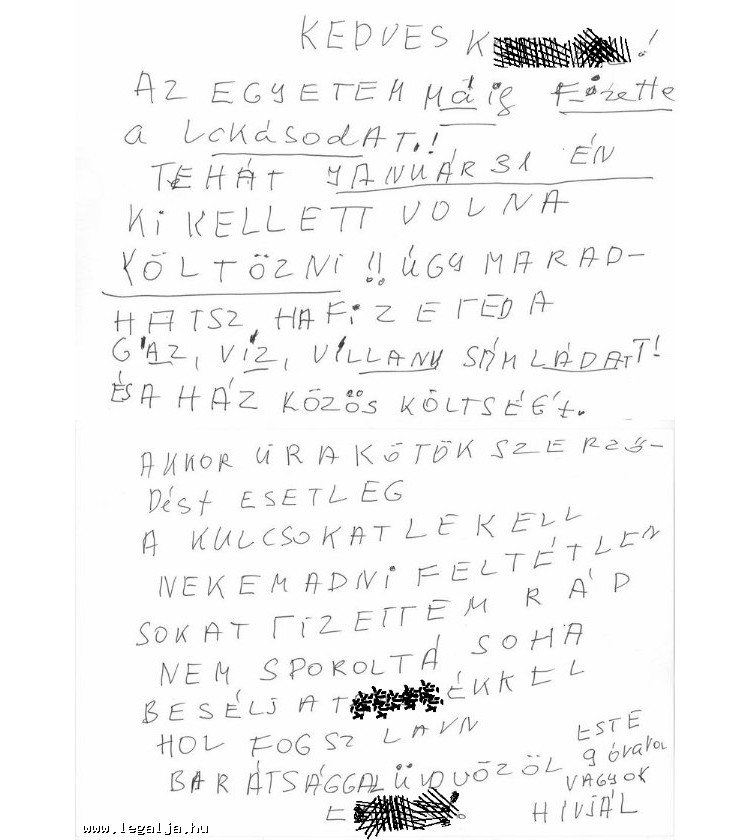 KEDVES K !
AZ EGYETEM Máig Fizette
a LaKásodAT.!
TEHÁT JANUÁR 31 ÉN
Ki KELLETT VOLNA
KÖLTÖZNI !! ÚGY MARAD-
HATSZ, HA FiZETED A
GÁZ, VíZ, ViLLANY SÁMLÁDATT!
ÉS A HÁZ KÖZÖS KÖLTSÉGÉt.
AKKOR ÚRA KÖTÖK SZERZŐ-
Dést ESETLEG
A KULCSOKAT LE KELL
NEKEM ADNi FELTÉTLEN
SOKAT FIZETTEM RÁD
NEM SPOROLTÁ SOHA
BESÉLJ A T ÉKKEL
HOL FOGSZ LAVN
BARÁTSÁGGAL ÜDVÖZÖL
E .
ESTE
9 óratol
VAGYOK
HIVJÁL
www.legalja.hu